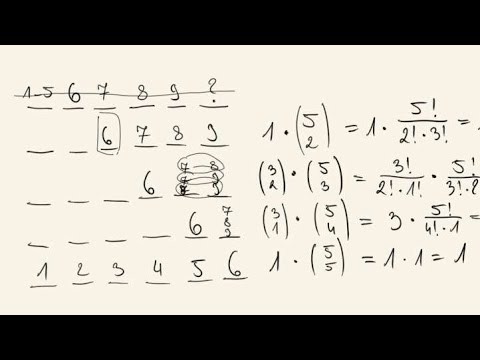 1-5 6 7 8 9 ?
6 7 8 9
6 7 8
6 7 8 9
1 2 3 4 5 6
1 · (5 2) = 1 · 5! / 2! · 3! =
(3 2) · (5 3) = 3! / 2! · 1! · 5! / 3! · 2
(3 1) · (5 4) = 3 · 5! / 4! · 1 =
1 · (5 5) = 1 · 1 = 1